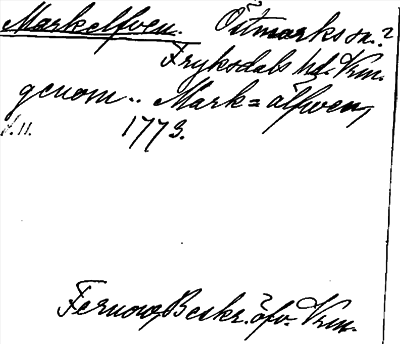 Markelfven. Östmarks sn.?
Fryksdals hd. Vrm.
genom .. Mark=älfwen,
1773.
Fernow, Beskr. öfv. Vrm.